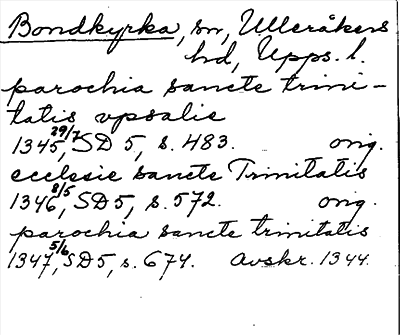 Bondkyrka, sn, Ulleråkers
hd, Upps. l.
parochia sancte trini-
tatis vpsalie
1345 29/7, SD 5, s. 483. orig.
ecclesie sancte Trinitatis
1346 8/5, SD 5, s. 572. orig.
parochia sancte trinitatis
1347 5/6, SD 5, s. 674. Avskr. 1344.